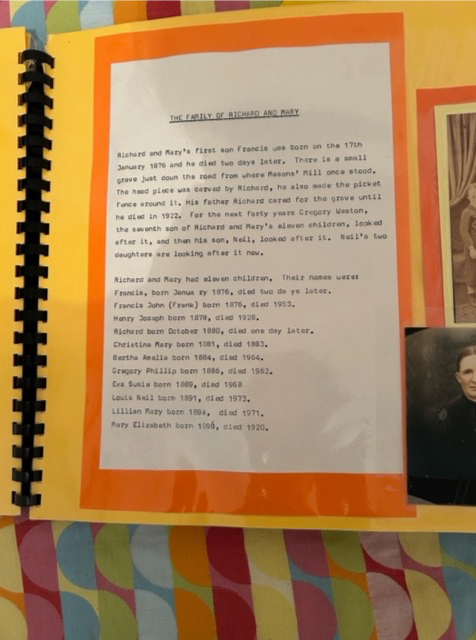 THE FAMILY OF RICHARD AND MARY
Richard and Mary's first son Francis was born on the 17th
January 1876 and he died two days later. There is a small
grave just down the road from where Masons' Mill once stood.
The head piece was carved by Richard, he also made the picket
fence around it. His father Richard cared for the grave until
he died in 1922. For the next forty years Gregory Weston,
the seventh son of Richard and Mary's eleven children, looked
after it, and then his son, Neil, looked after it. Neil's two
daughters are looking after it now.
Richard and Mary had eleven children. Their names were:
Francis, born Janua ry 1876, died two da ys later.
Francis John (Frank) born 1876, died 1953.
Henry Joseph born 1878, died 1928.
Richard born October 1880, died one day later.
Christina Mary born 1881, died 1883.
Bertha Amelia born 1884, died 1964.
Gregory Phillip born 1886, died 1962.
Eva Susie born 1889, died 1968
Louis Neil born 1891, died 1973.
Lillian Mary born 1894, died 1971.
Mary Elizabeth born died 1920.